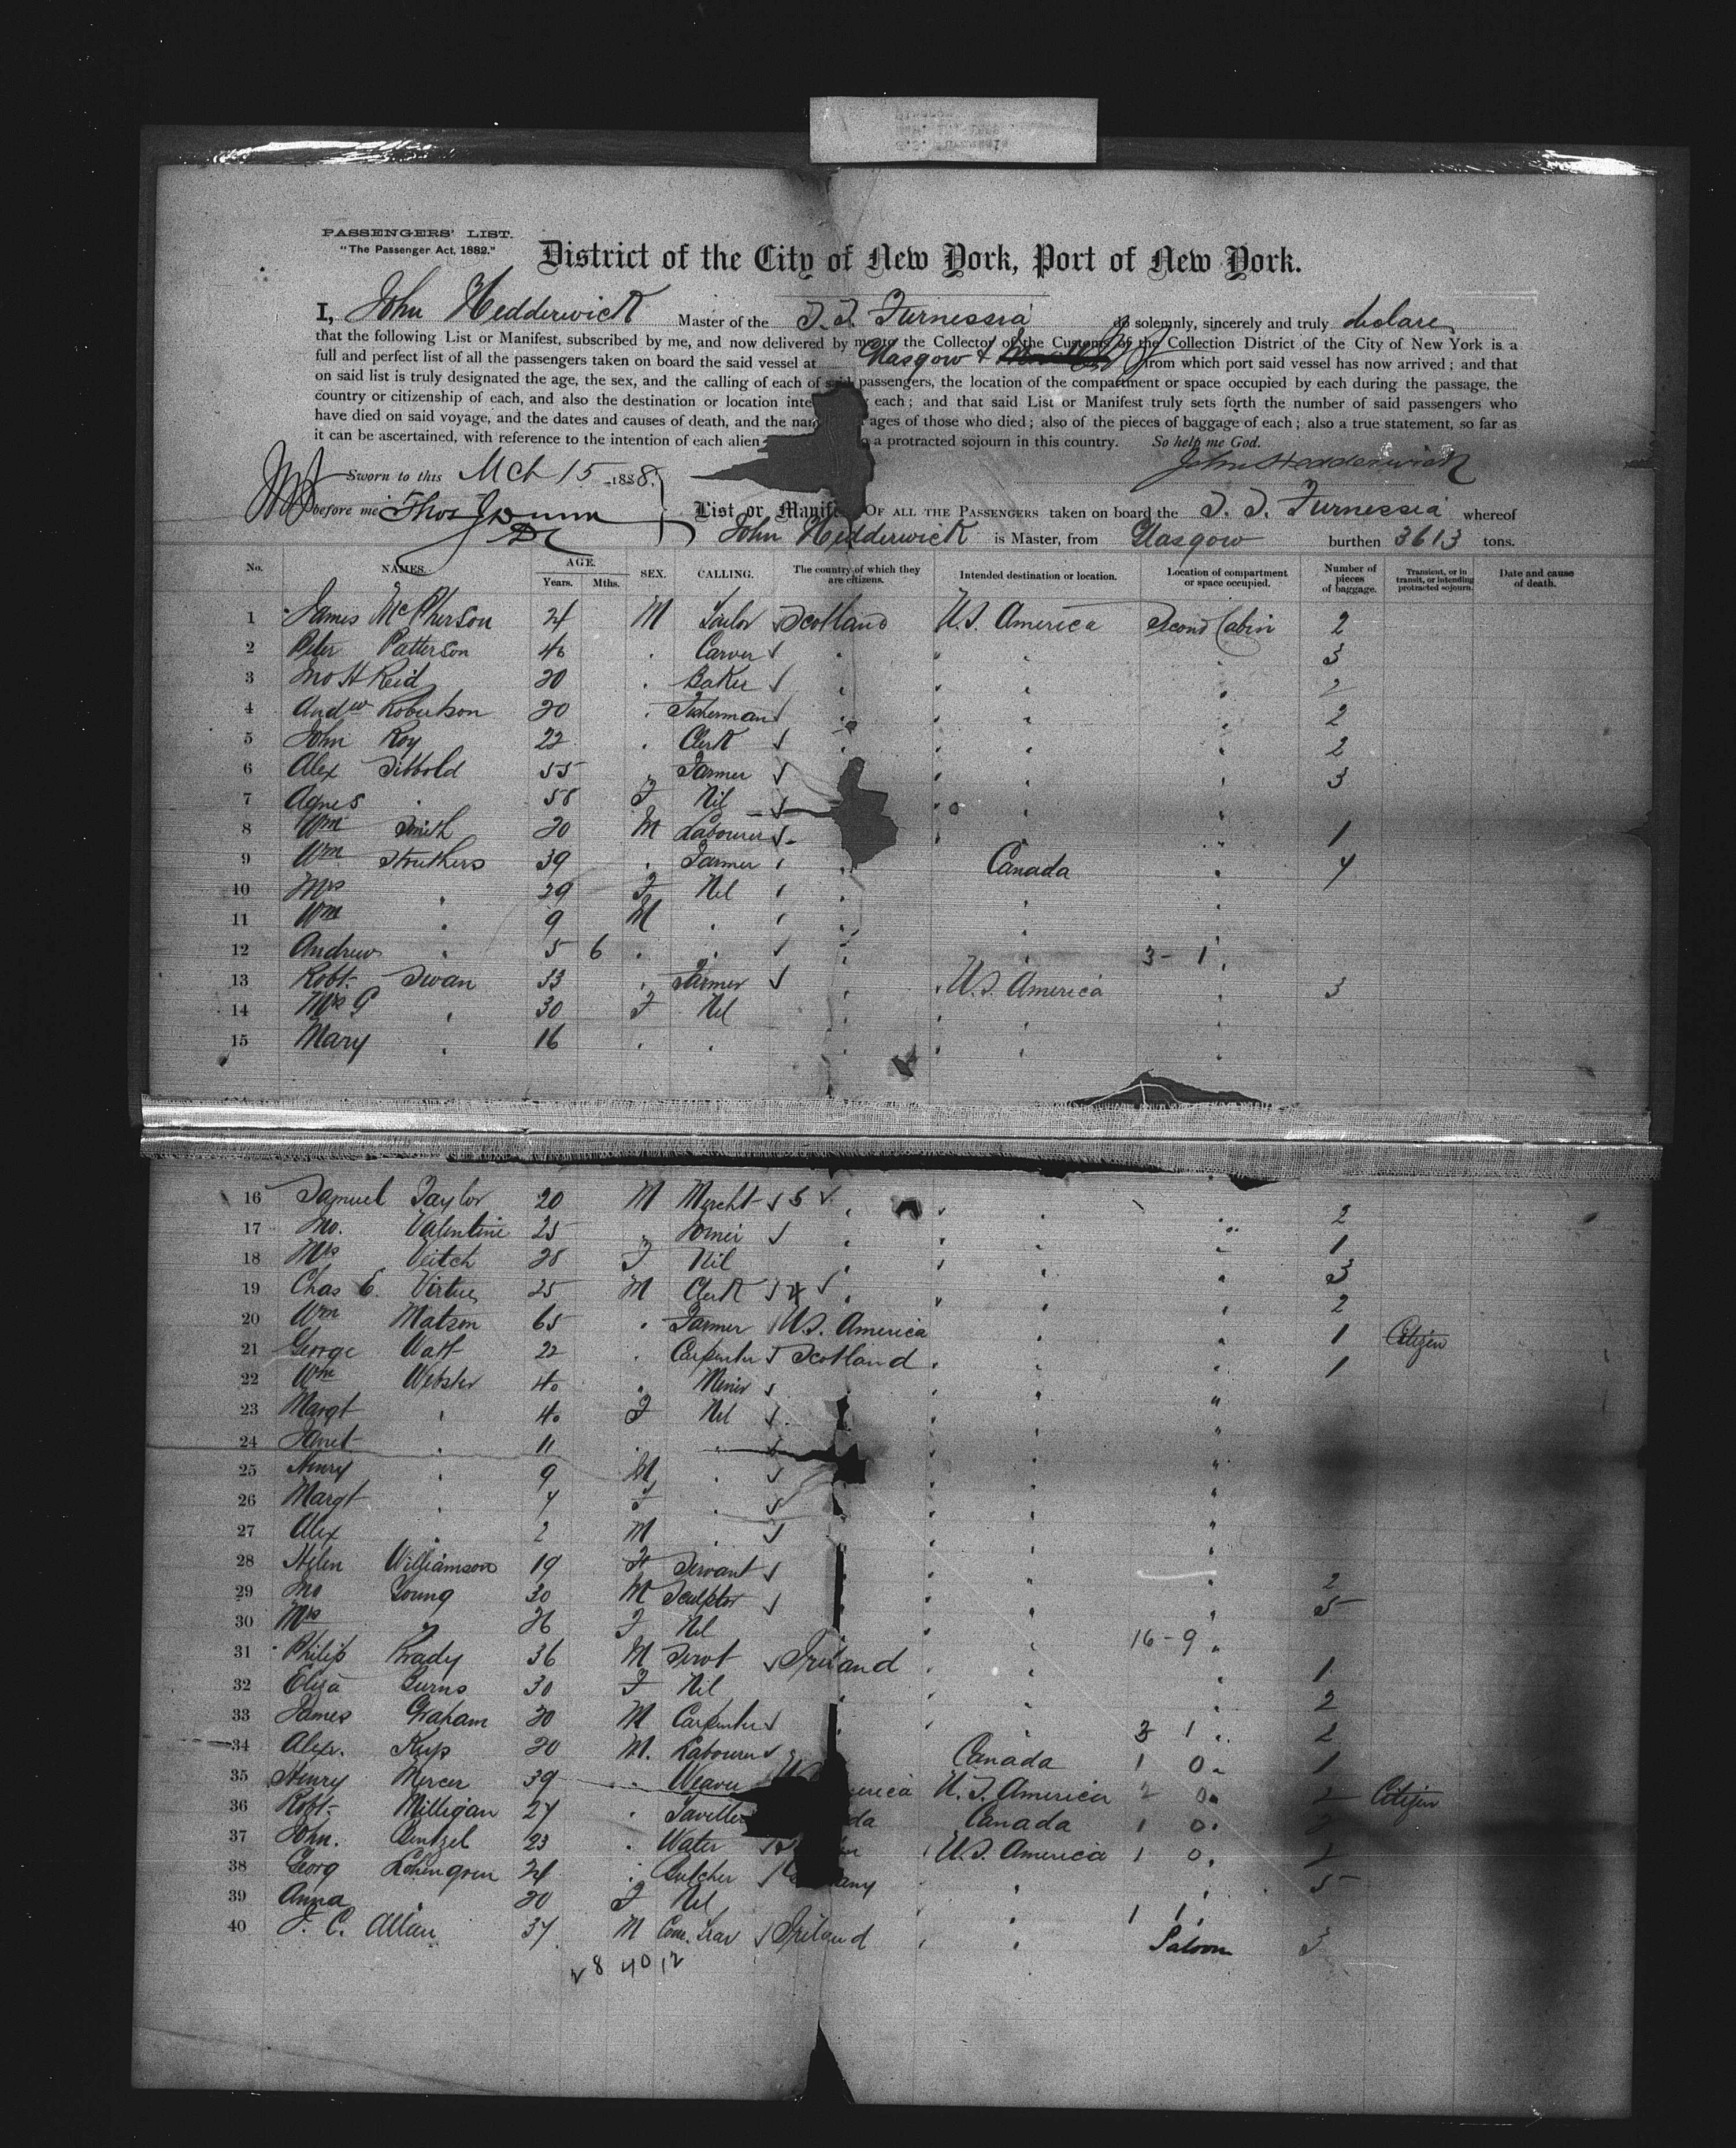 PASSENGERS' LIST.
"The Passenger Act, 1882."
District of the City of New York, Port of New York.
I, John Hedderwick Master of the S.S. Furnessia do solemnly, sincerely and truly declare
that the following List or Manifest, subscribed by me, and now delivered by me to the Collector of the Customs of the Collection District of the City of New York is a
full and perfect list of all the passengers taken on board the said vessel at Glasgow & from which port said vessel has now arrived; and that
on said list is truly designated the age, the sex, and the calling of each of said passengers, the location of the compartment or space occupied by each during the passage, the
country or citizenship of each, and also the destination or location inte each; and that said List or Manifest truly sets forth the number of said passengers who
have died on said voyage, and the dates and causes of death, and the nam ages of those who died; also of the pieces of baggage of each; also a true statement, so far as
it can be ascertained, with reference to the intention of each alien a protracted sojourn in this country. So help me God.
John Hedderwick
Sworn to this Mch 15 1888.
before me Thos J Dunn
List or Manifest OF ALL THE PASSENGERS taken on board the S.S. Furnessia whereof
John Hedderwick is Master, from Glasgow burthen 3613 tons.
No. NAMES. AGE. Years. Mths. SEX. CALLING. The country of which they are citizens. Intended destination or location. Location of compartment or space occupied. Number of pieces of baggage. Transient, or in transit, or intending protracted sojourn. Date and cause of death.
1 James McPherson 24 M Tailor Scotland U.S. America Second Cabin 2
2 Peter Patterson 46 Carver 3
3 Jno H Reid 20 Baker 2
4 Andw Robertson 20 Fisherman 2
5 John Roy 22 Clerk 2
6 Alex Sibbold 55 Farmer 3
7 Agnes 58 F Nil
8 Wm Smith 20 M Labourer 1
9 Wm Struthers 39 Farmer Canada 4
10 Mrs 29 F Nil
11 Wm 9 M
12 Andrew 5 6 3 - 1
13 Robt. Swan 33 Farmer U.S. America 3
14 Mrs G 30 F Nil
15 Mary 16
16 Samuel Taylor 20 M Mercht 5 2
17 Jno. Valentine 25 Joiner 1
18 Mrs Veitch 28 F Nil 3
19 Chas E. Virtue 25 M Clerk 4 2
20 Wm Matson 65 Farmer U.S. America 1 Citizen
21 George Watt 22 Carpenter Scotland 1
22 Wm Webster 40 Miner
23 Margt 40 F Nil
24 Janet 11
25 Henry 9 M
26 Margt 4 F
27 Alex 2 M
28 Helen Williamson 19 F Servant 2
29 Jno Young 30 M Sculptor 5
30 Mrs 26 F Nil 16 - 9
31 Philip Brady 36 M Servt Ireland 1
32 Eliza Burns 30 F Nil 2
33 James Graham 20 M Carpenter 3 1 2
34 Alex. Kup 20 M. Labourer Canada 1 0 1
35 Henry Mercer 39 Weaver erica U.S. America 2 0 2 Citizen
36 Robt. Milligan 27 da Canada 1 0 2
37 John. 23 U.S. America 1 0 2
38 Georg Lohengren 24 Butcher any 5
39 Anna 20 F Nil 1 1
40 J. C. Allan 37 M Com. Trav Ireland Saloon 3
28 40 12